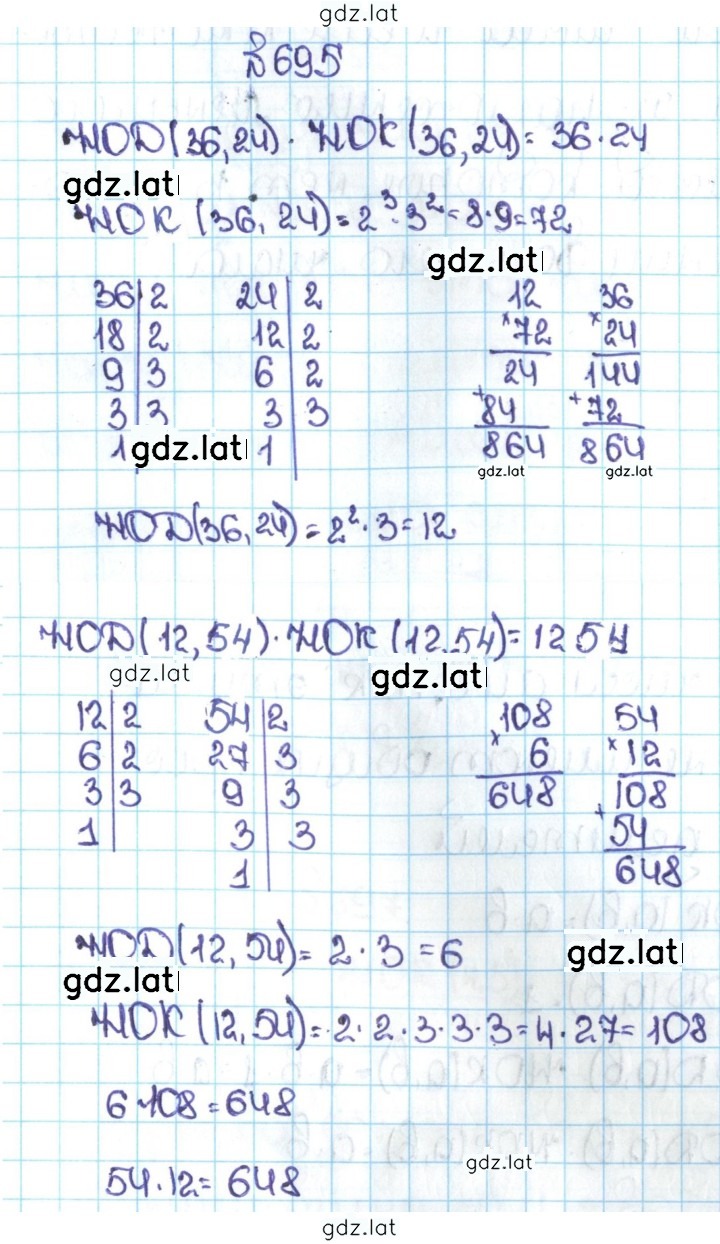 gdz.lat
№695
НОД(36,24)·НОК(36,24)=36·24
gdz.lat
НОК(36,24)=2³·3²=8·9=72
gdz.lat
36|2 24|2 12 36
18|2 12|2 ×72 ×24
9|3 6|2 24 144
3|3 3|3 +84 +72
1 gdz.lat 1 864 864
gdz.lat gdz.lat
НОД(36,24)=2²·3=12
НОД(12,54)·НОК(12,54)=12 54
gdz.lat gdz.lat
12|2 54|2 108 54
6|2 27|3 ×6 ×12
3|3 9|3 648 108
1 3|3 +54
1 648
НОД(12,54)=2·3=6
gdz.lat
gdz.lat
НОК(12,54)=2·2·3·3·3=4·27=108
6·108=648
gdz.lat
54·12=648
gdz.lat